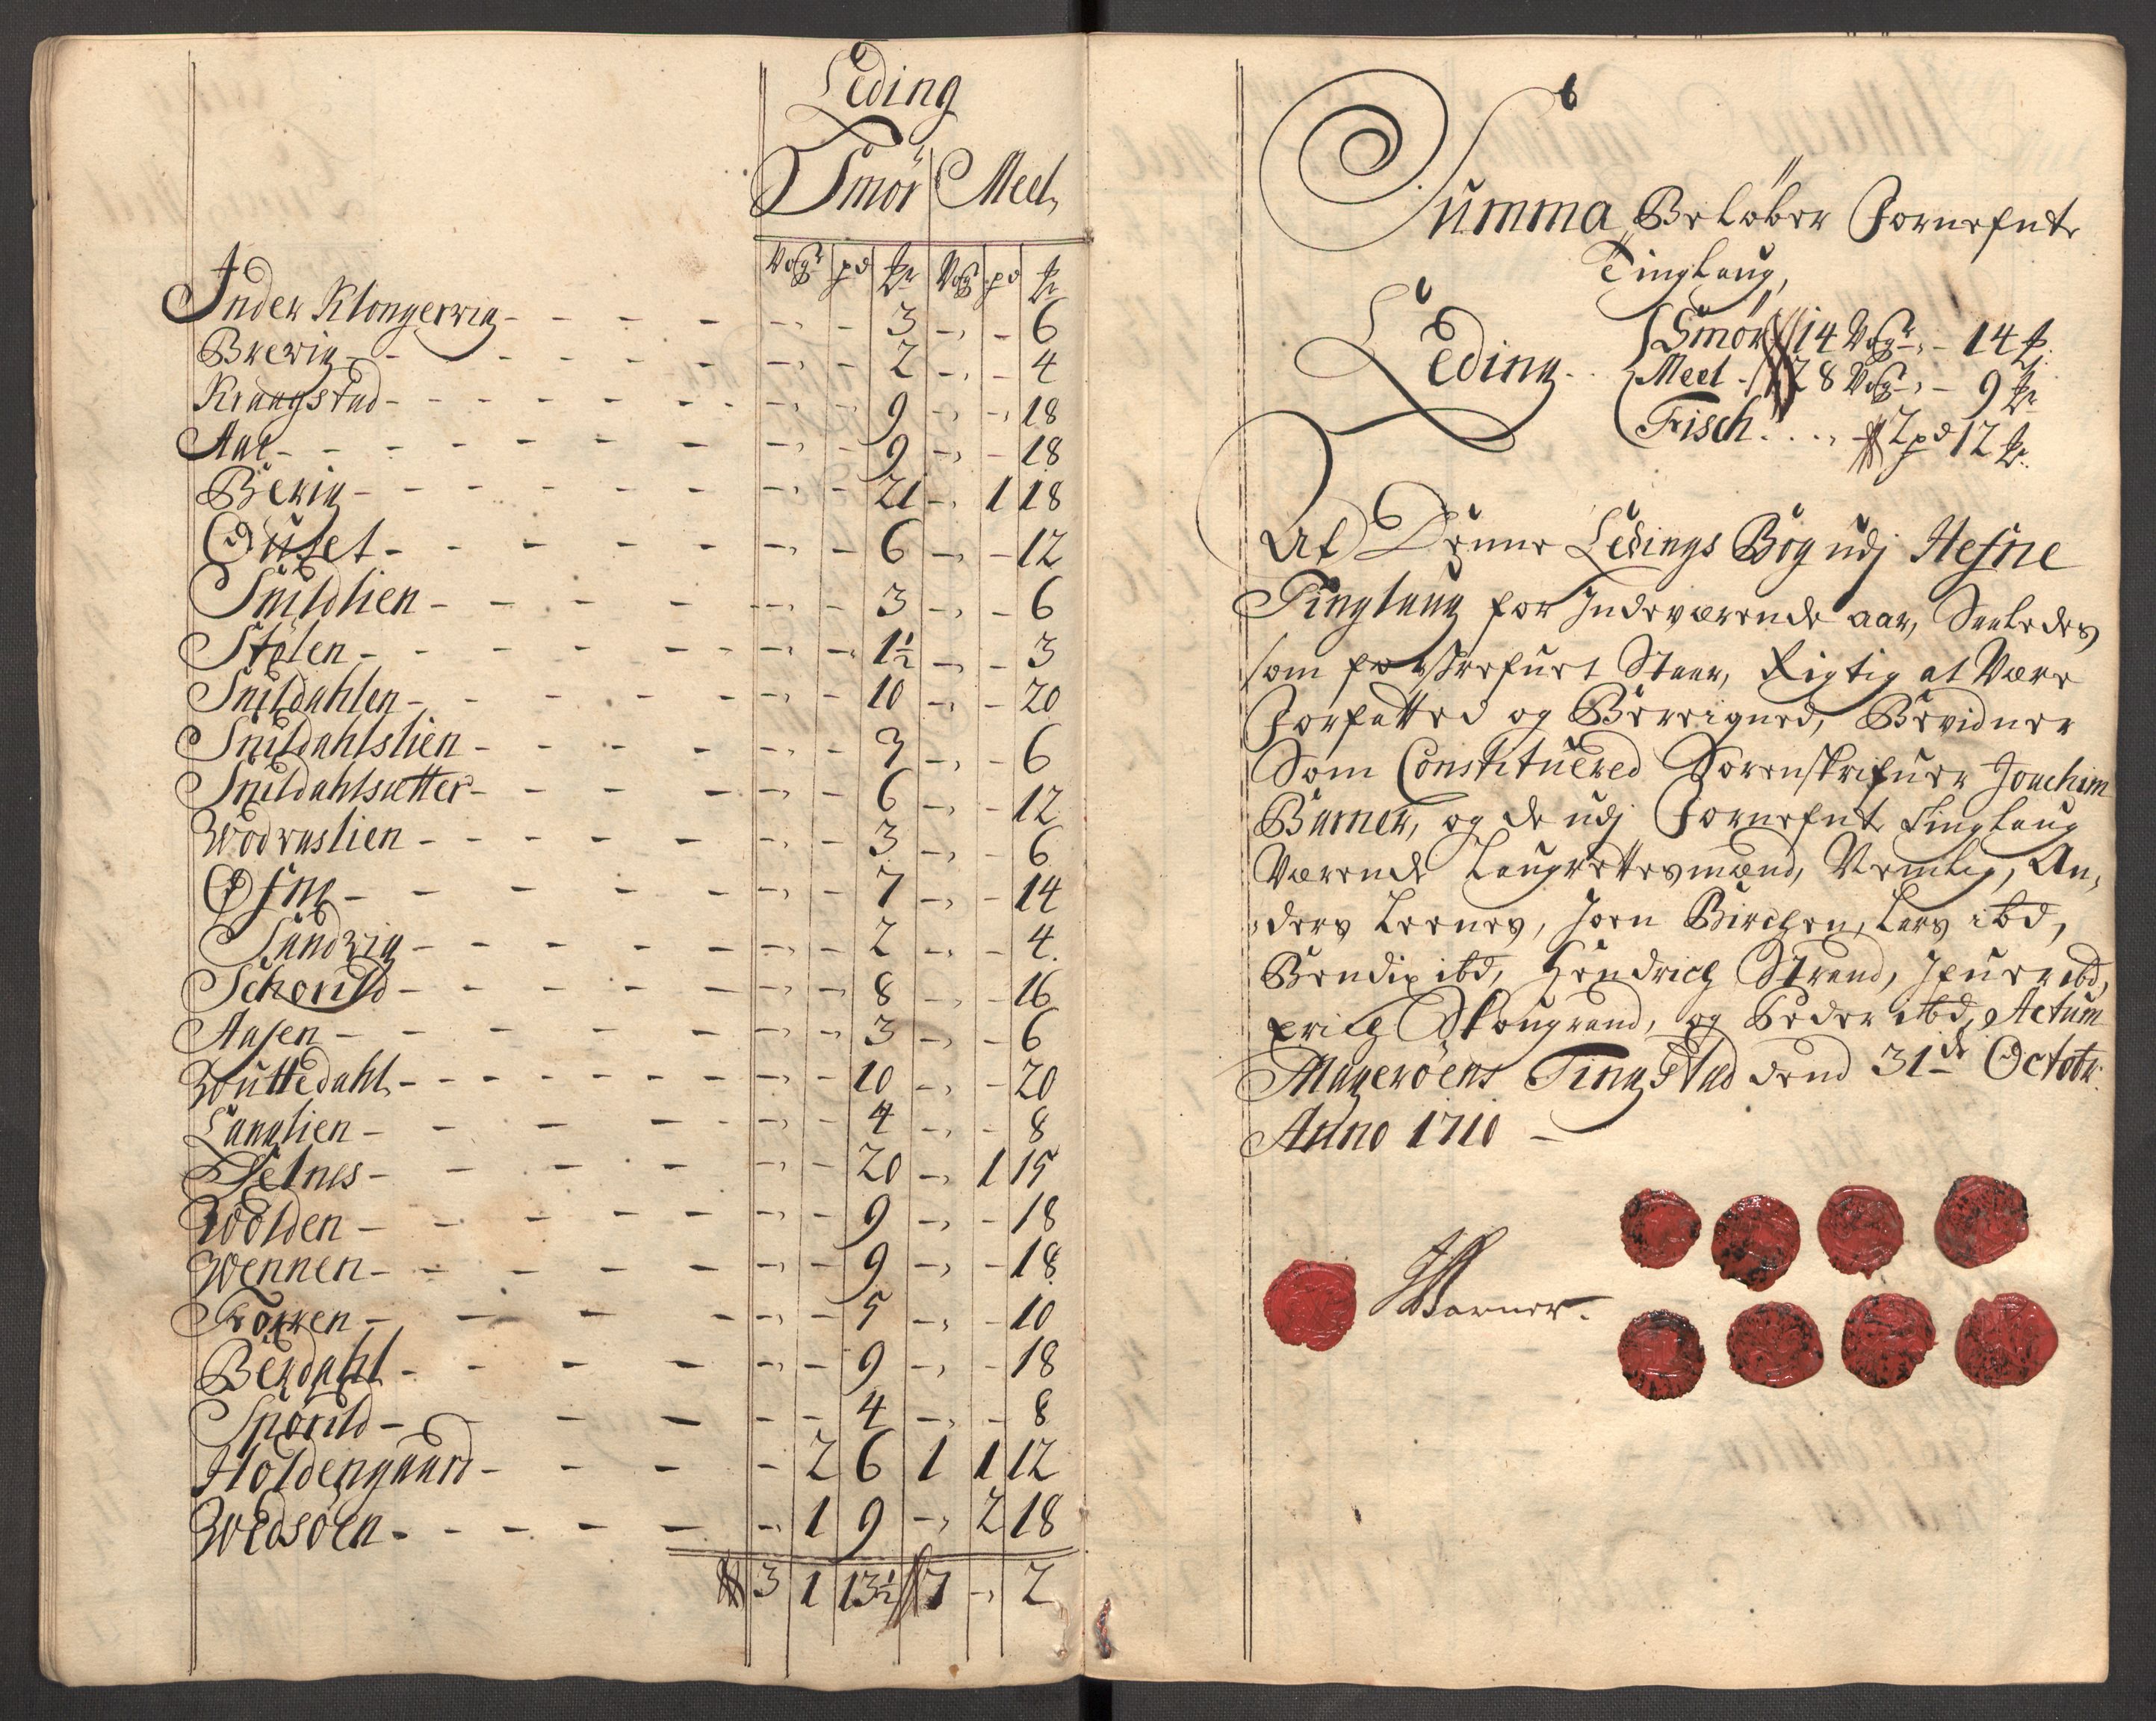 Leding
Smör Meel
Vogr pd ℔r Vog pd ℔r
Inder Klongerwig - - - - - - 3 - - 6
Brewig - - - - - - 2 - - 4
Kraagstad - - - - - - 9 - - 18
Aae - - - - - - 9 - - 18
Bewig - - - - - - 21 - 1 18
Oüset - - - - - - 6 - - 12
Snildlien - - - - - - 3 - - 6
Stölen - - - - - - 1½ - - 3
Snildahlen - - - - - - 10 - - 20
Snildahlslien - - - - - - 3 - - 6
Snildahlsætter - - - - - - 6 - - 12
Wodvaslien - - - - - - 3 - - 6
Øfne - - - - - - 7 - - 14
Sandwig - - - - - - 2 - - 4
Schorild - - - - - - 8 - - 16
Aasen - - - - - - 3 - - 6
Wuttedahl - - - - - - 10 - - 20
Langlien - - - - - - 4 - - 8
Selnes - - - - - - 20 - 1 15
Wolden - - - - - - 9 - - 18
Wennen - - - - - - 9 - - 18
Törken - - - - - - 5 - - 10
Berdahl - - - - - - 9 - - 18
Snorild - - - - - - 4 - - 8
Holdengaard - - - - 2 6 1 1 12
Wedsöen - - - - - 1 9 - 2 18
3 1 13½ 7 - 2
Summa Beløber Fornefnte
Tinglaug,
Leding Smör 14 Vogr - 14 ℔
Meel - 28 Vog - 9 ℔r
Fisch . . . 2 pd 12 ℔r
At Denne Ledings Bog udj Hefne
Tinglaug for Indeværende aar, Saaledes
som forskrefuet Staar, Rigtig at Være
Forfatted og Bereigned, Bevidner
Som Constitueered Sorenskrifuer Joachim
Barner, og de udj Fornefnte Tinglaug
Værende Laugrettesmænd, Nemlig, An,
ders Leernes, Joen Birchen, Lars ibd,
Bendix ibd, Hendrich Strand, Ifuer ibd,
Erich Skougrand, og Peder ibd, Actum
Mageröens Tingstad dend 31de Octobr.
Anno 1710 -
JBarner.